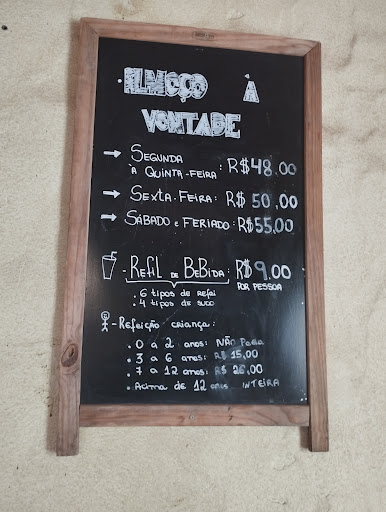 · ALMOÇO À
VONTADE
→ SEGUNDA
À QUINTA-FEIRA: R$48,00
→ SEXTA-FEIRA: R$ 50,00
→ SÁBADO e FERIADO: R$55,00
- REFIL DE BEBIDA: R$9,00
POR PESSOA
: 6 tipos de refri
: 4 tipos de suco
- Refeição criança:
• 0 a 2 anos: NÃO Paga
• 3 a 6 anos: R$ 15,00
• 7 a 12 anos: R$ 26,00
• Acima de 12 anos INTEIRA